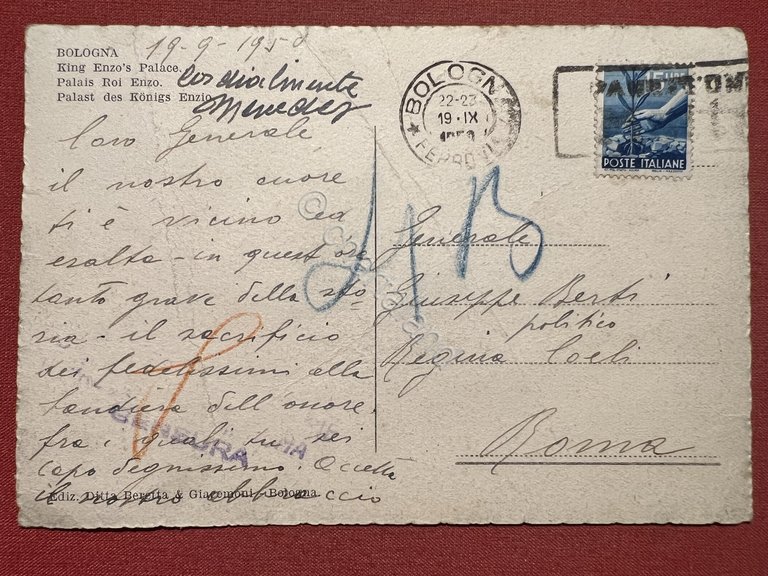 BOLOGNA
King Enzo's Palace.
Palais Roi Enzo.
Palast des Königs Enzio
19-9-1950
Cordialmente
BOLOGNA
22-23
19·IX
FERROVIA
POSTE ITALIANE
Caro Generale,
il nostro cuore
ti è vicino ed
esalta - in quest'ora
tanto grave della sto
ria - il sacrificio
dei fedelissimi alla
bandiera dell'onore
fra i quali tu sei
capo degnissimo. Accetta
il nostro abbraccio
Ediz. Ditta Beretta & Giacomoni - Bologna.
CENSURA
Generale
Giuseppe Berti
politico
Regina Coeli
Roma